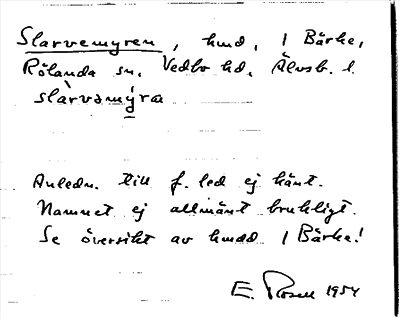 Slarvemyren, hmd, i Bärke,
Rölanda sn. Vedbo hd. Älvsb. l.
slàrvəmý̱ra
Anledn. till f. led ej känt.
Namnet ej allmänt brukligt.
Se översikt av hmdd i Bärke!
E. Rosell 1954